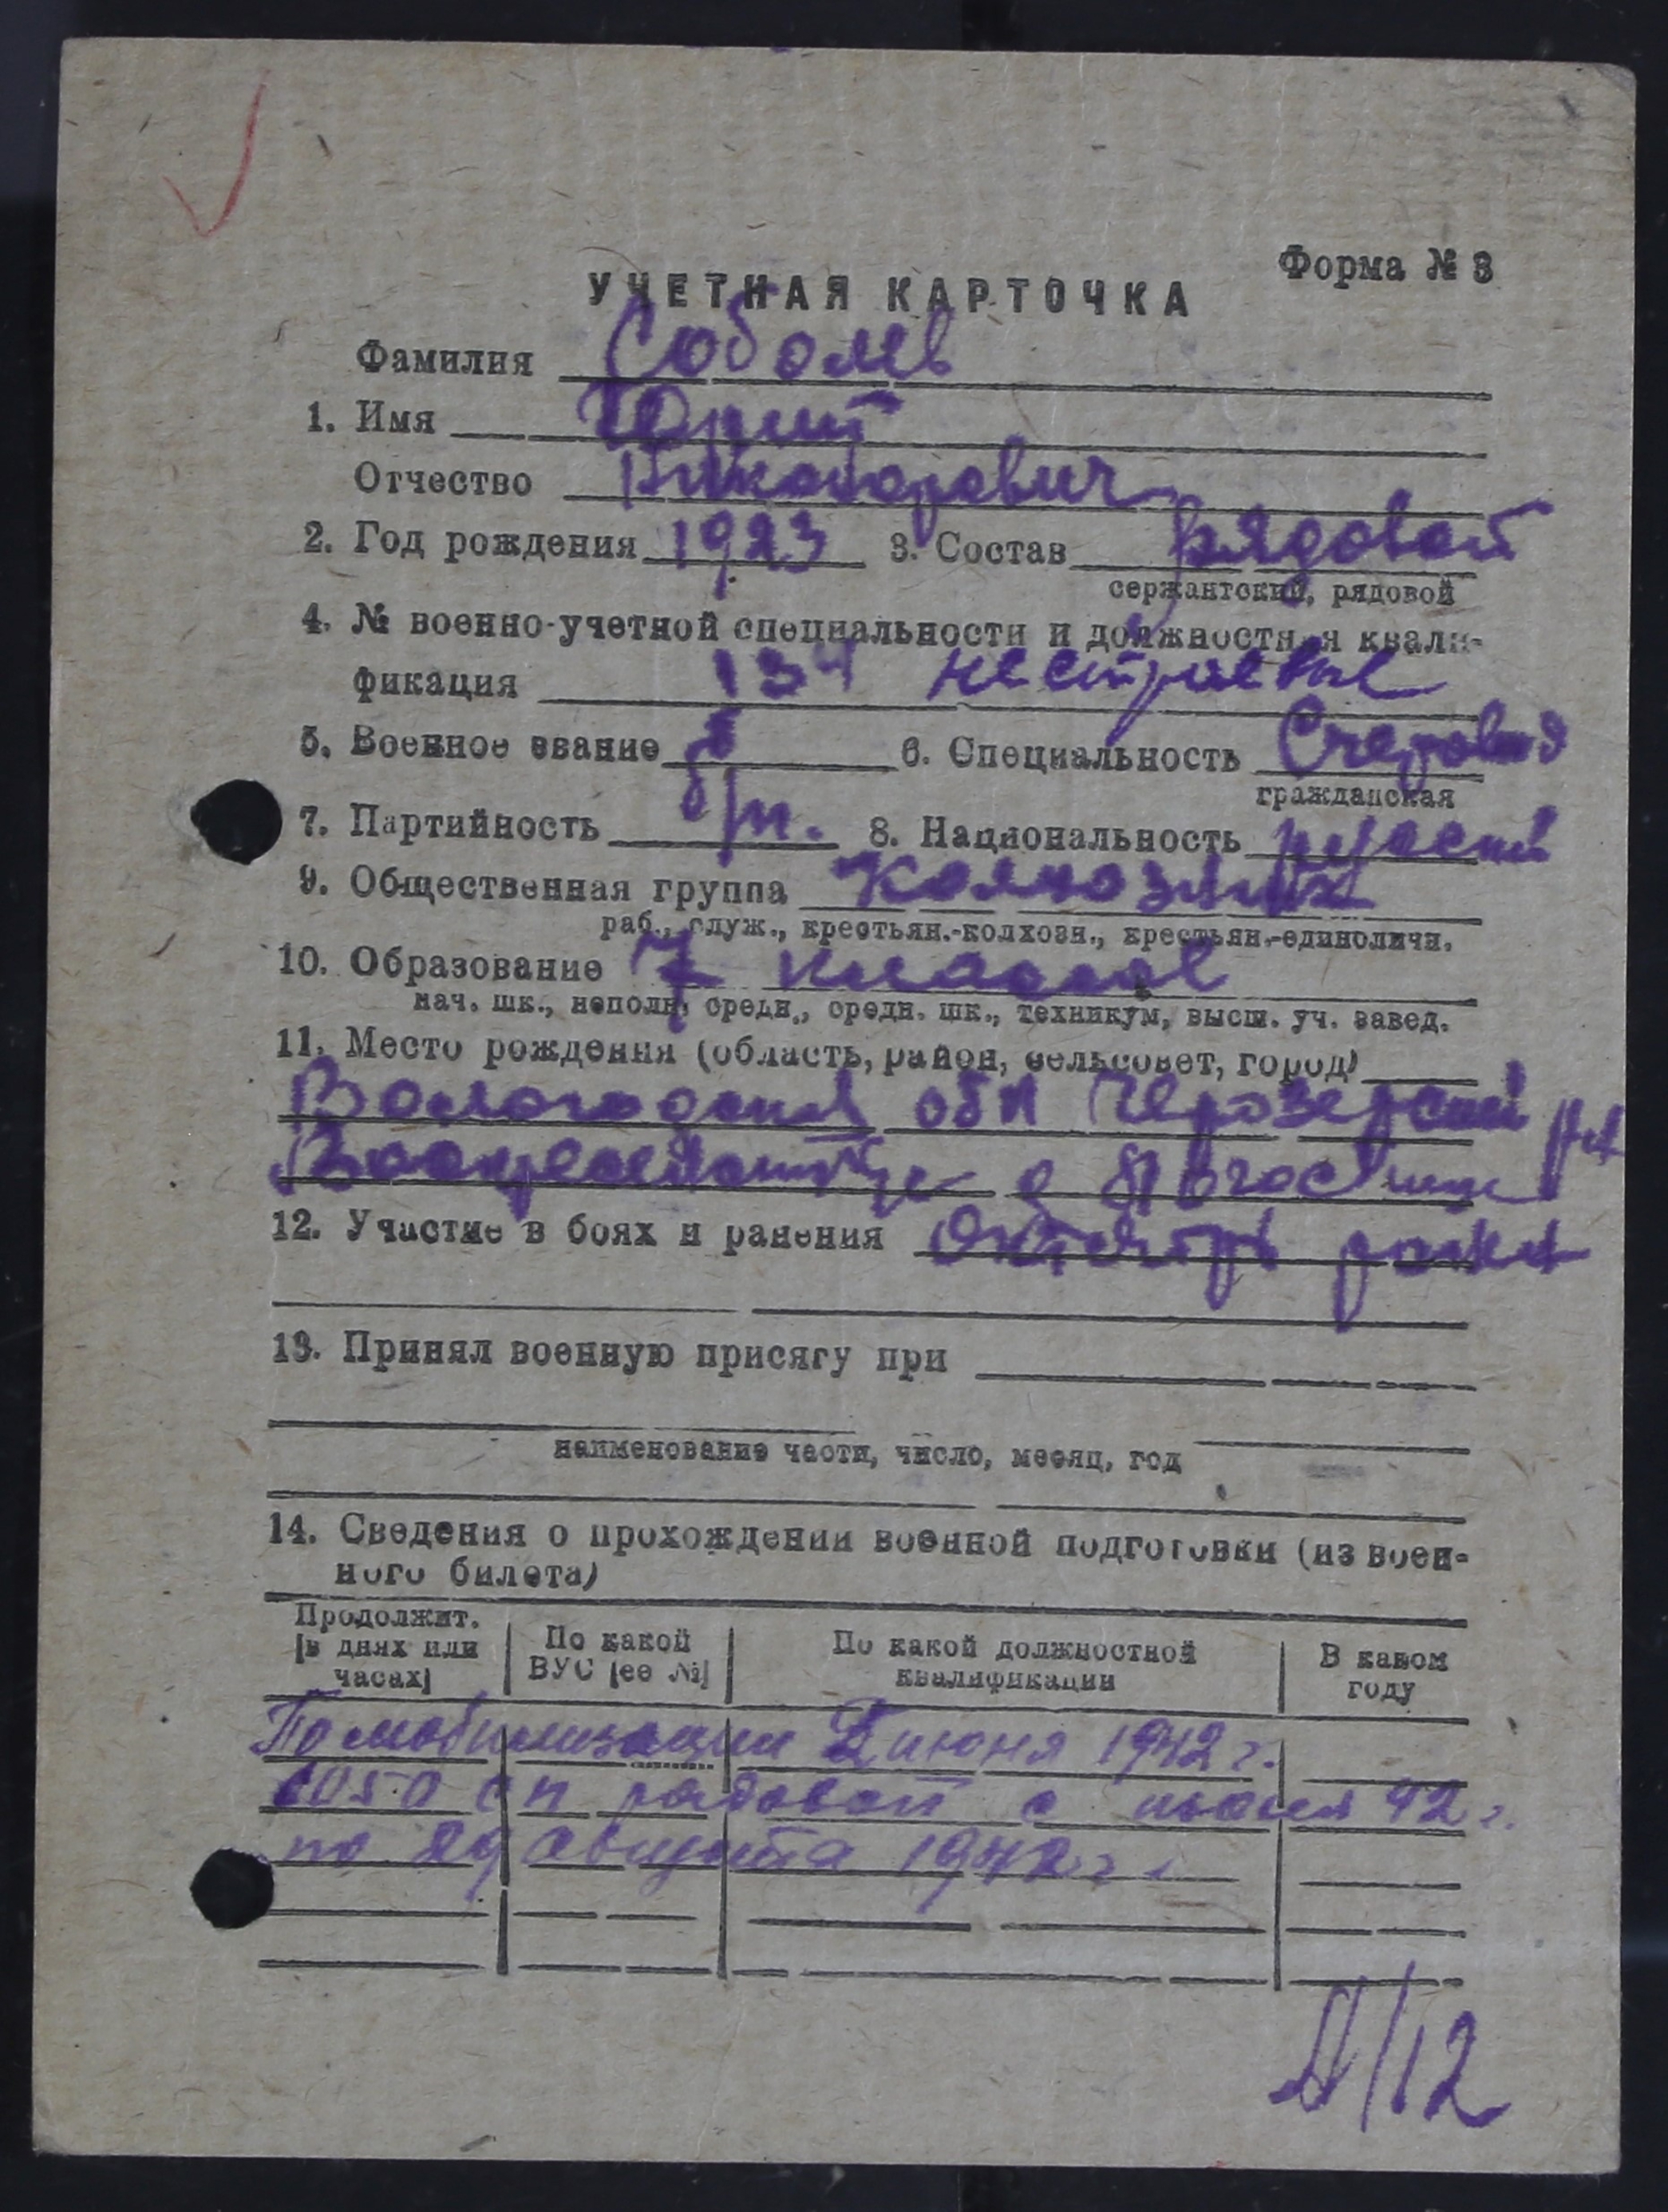 Форма № 3
УЧЕТНАЯ КАРТОЧКА
Фамилия Соболев
1. Имя Юрий
Отчество Никанорович
2. Год рождения 1923 3. Состав рядовой
сержантский, рядовой
4. № военно-учетной специальности и должностная квали-
фикация 134 нестроевые
5. Военное звание 6. Специальность
гражданская
7. Партийность б/п. 8. Национальность русский
9. Общественная группа колхозник
раб., служ., крестьян.-колхозн., крестьян.-единоличн.
10. Образование 7 классов
нач. шк., неполн. средн., средн. шк., техникум, высш. уч. завед.
11. Место рождения (область, район, сельсовет, город)
Вологодская обл Чарозерский
12. Участие в боях и ранения
13. Принял военную присягу при
наименование части, число, месяц, год
14. Сведения о прохождении военной подготовки (из воен-
ного билета)
Продолжит. (в днях или часах) По какой ВУС (ее №) По какой должностной квалификации В каком году
По мобилизации 2 июня 1942 г.
1050 сп рядовой с июня 42 г.
по 29 августа 1942 г.